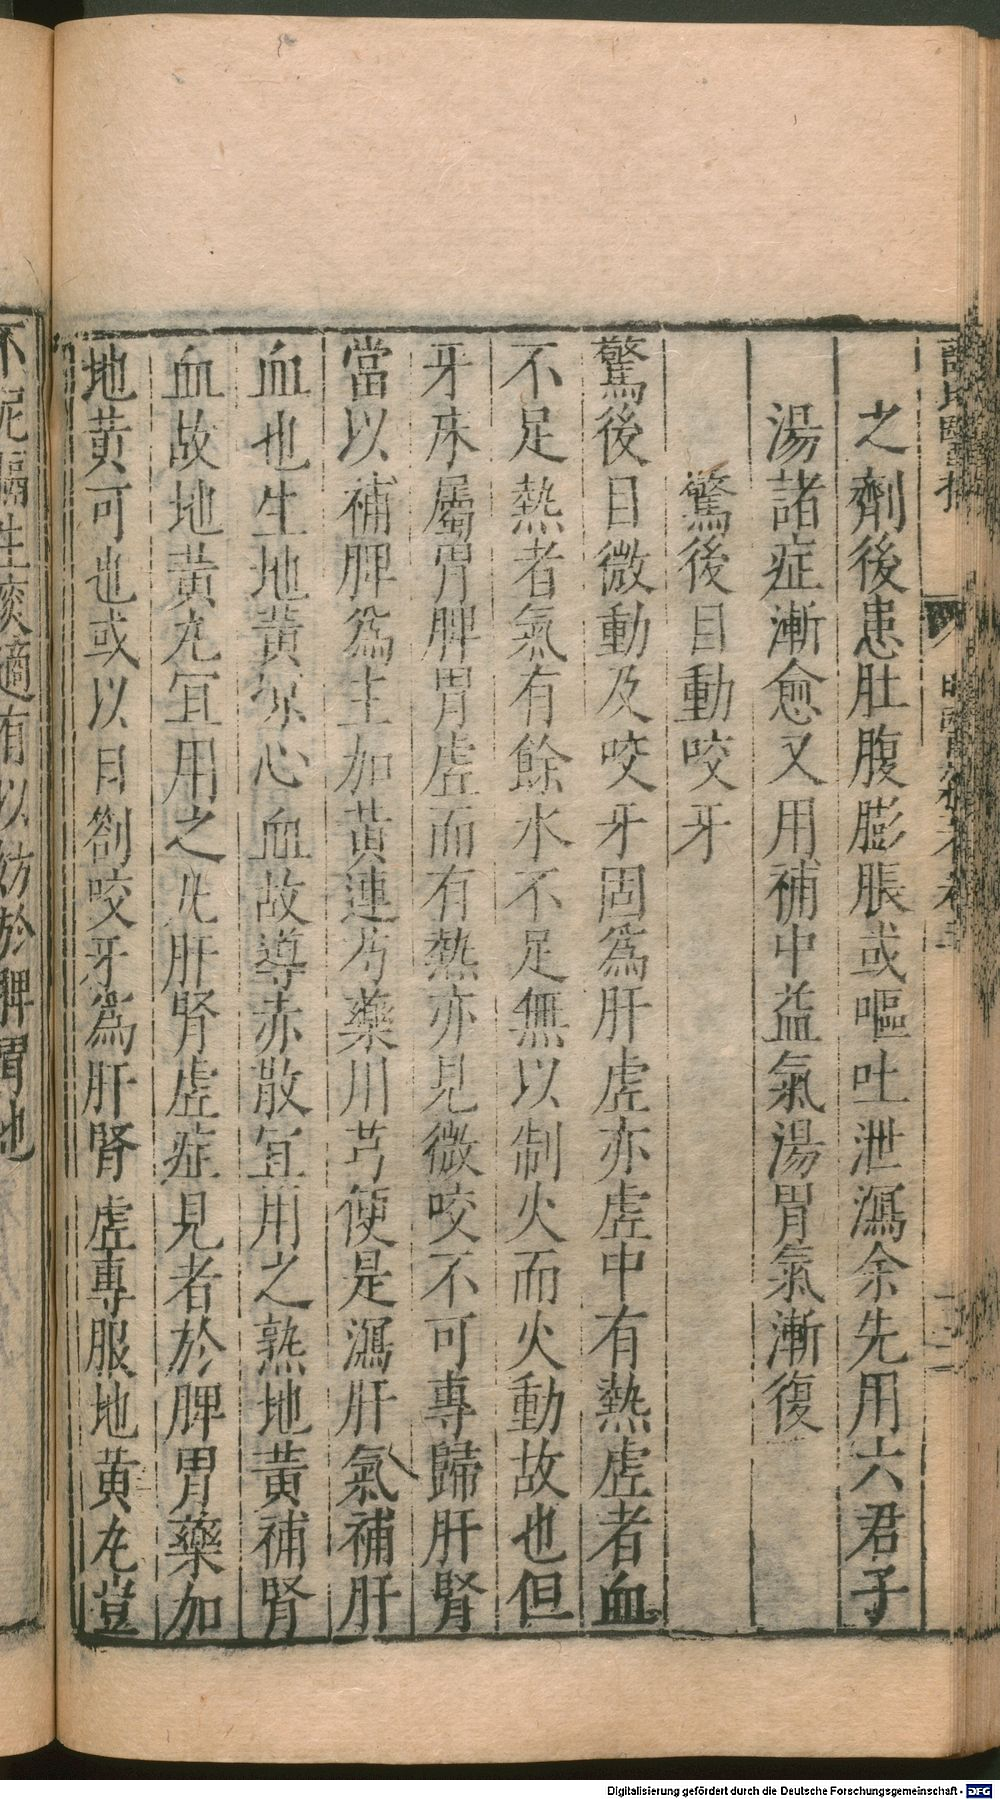 之劑後患肚腹膨脹或嘔吐泄瀉余先用六君子
湯諸症漸愈又用補中益氣湯胃氣漸復
驚後目動咬牙
驚後目微動及咬牙固為肝虛亦虛中有熱虛者血
不足熱者氣有餘水不足無以制火而火動故也但
牙床屬胃脾胃虛而有熱亦見微咬不可專歸肝腎
當以補脾為主加黃連芍藥川芎便是瀉肝氣補肝
血也生地黃凉心血故導赤散宜用之熟地黃補腎
血故地黃丸宜用之凡肝腎虛症見者於脾胃藥加
地黃可也或以目劄咬牙為肝腎虛專服地黃丸豈
Digitalisierung gefördert durch die Deutsche Forschungsgemeinschaft - DFG